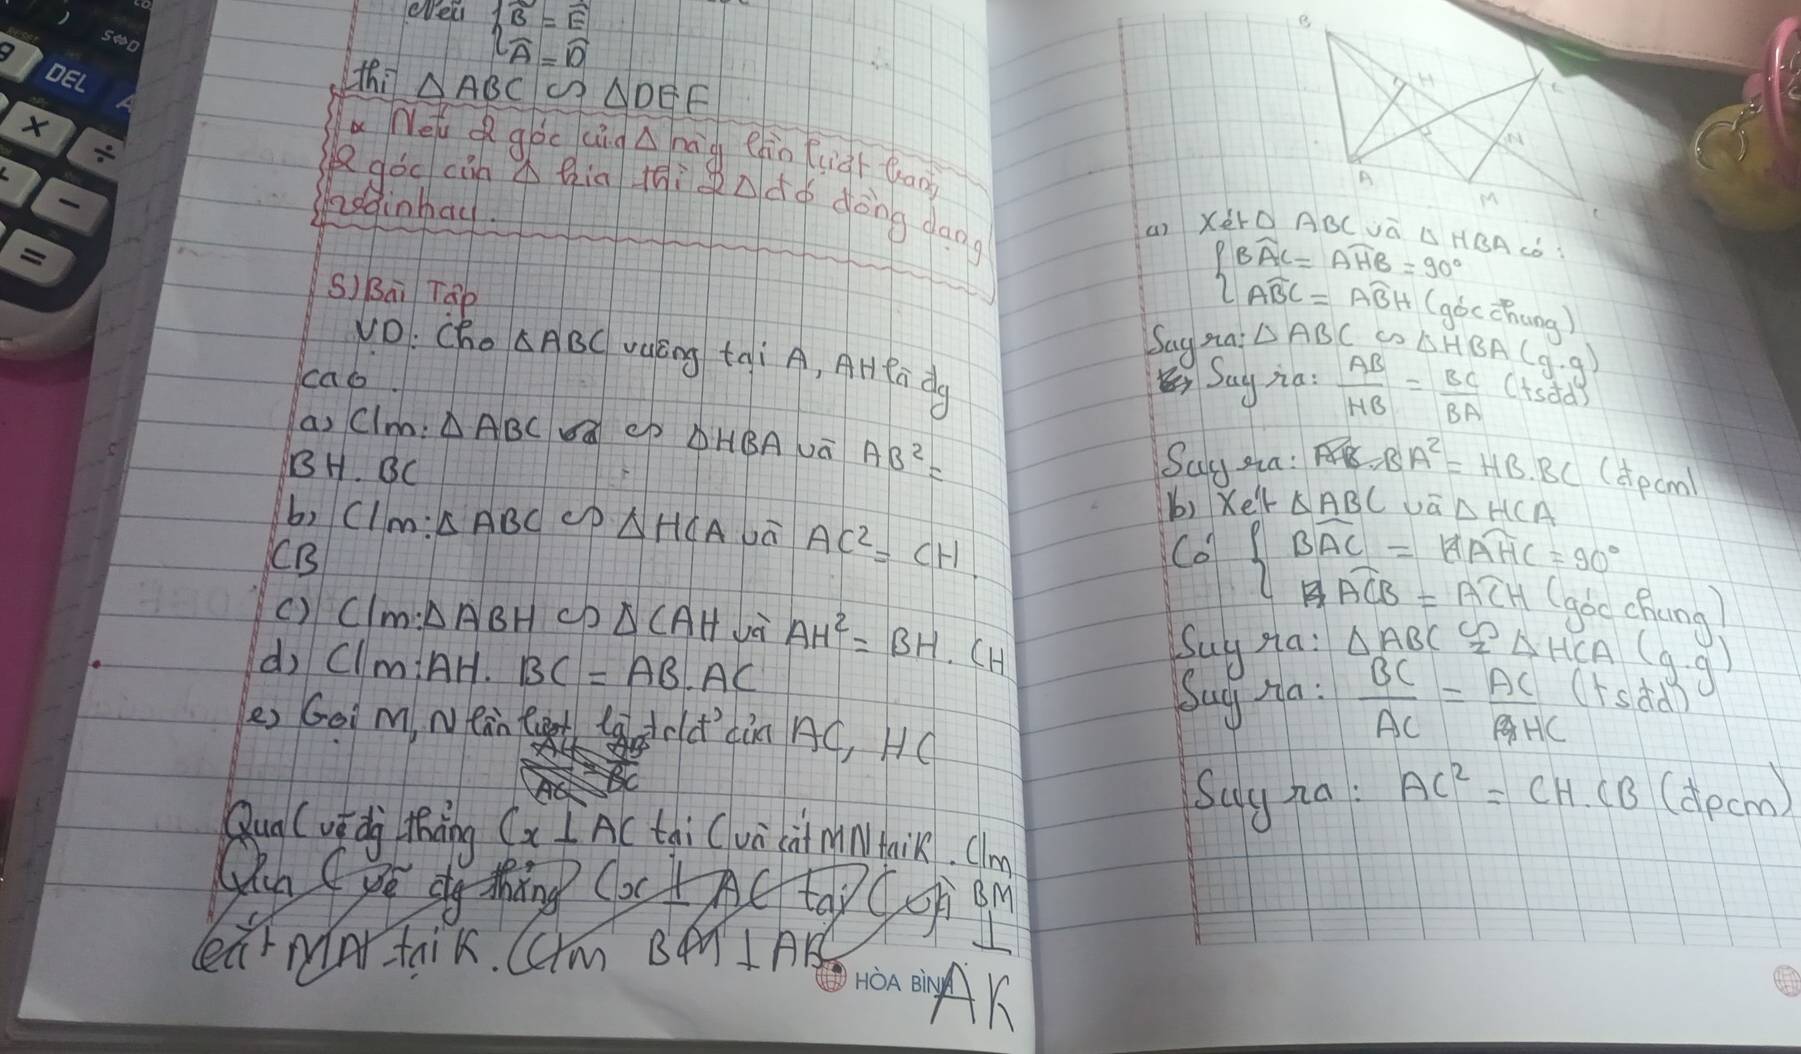 S⇔D
DEL
Nếu { B = E
A = D
thì Δ ABC ∽ ΔDEF
* Nếu 2 góc của Δ này lần lượt bằng
2 góc của Δ kia thì 2 Δ đó đồng dạng
với nhau.
5) Bài Tập
VD: Cho ΔABC vuông tại A, AH là đg
cao.
a) C/m: Δ ABC ∽ ΔHBA và AB² =
BH. BC
b) C/m: Δ ABC ∽ ΔHCA và AC² = CH.
CB
c) C/m: Δ ABH ∽ Δ CAH và AH² = BH. CH
d) C/m: AH. BC = AB. AC
e) Gọi M, N lần lượt là tđ của AC, HC
Qua C vẽ đg thẳng Cx ⊥ AC tại C và cắt MN tại K. C/m
Qua C vẽ đg thẳng Cx ⊥ AC tại C và BM
cắt MN tại K. C/m BM ⊥ AK ⊥
HÒA BÌNH AK
B
H
K
N
A
M
C
a) Xét Δ ABC và Δ HBA có:
{ BAC = AHB = 90°
ABC = ABH (góc chung)
Suy ra: Δ ABC ∽ Δ HBA (g.g)
Suy ra: AB/HB = BC/BA (tsđd)
Suy ra: BA² = HB.BC (đpcm)
b) Xét Δ ABC và Δ HCA
Có { BAC = AHC = 90°
ACB = ACH (góc chung)
Suy ra: Δ ABC ∽ Δ HCA (g.g)
Suy ra: BC/AC = AC/HC (tsđd)
Suy ra: AC² = CH.CB (đpcm)